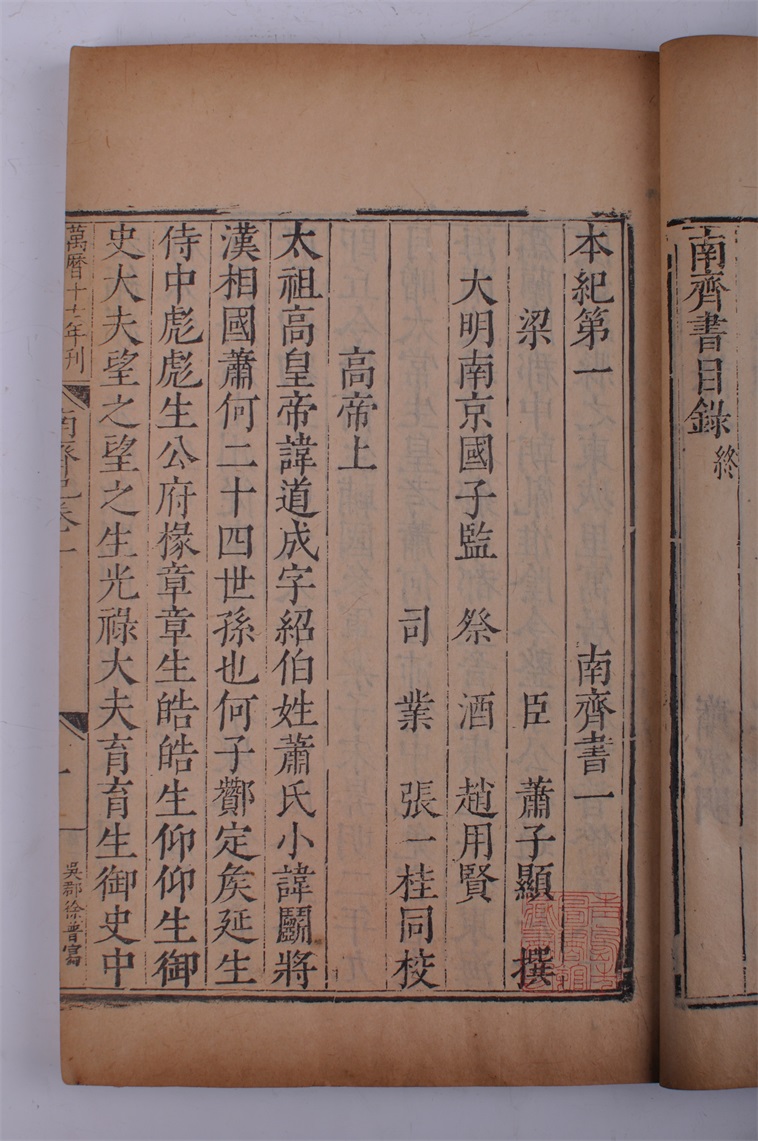 南齊書目錄終
本紀第一　南齊書一
梁　臣　蕭子顯　撰
大明南京國子監　祭　酒　趙用賢
司　業　張一桂同校
高帝上
太祖高皇帝諱道成字紹伯姓蕭氏小諱鬭將
漢相國蕭何二十四世孫也何子酇定矦延生
侍中彪彪生公府掾章章生皓皓生仰仰生御
史大夫望之望之生光祿大夫育育生御史中
萬曆十七年刊
南齊紀卷一
一
吳郡徐普寫